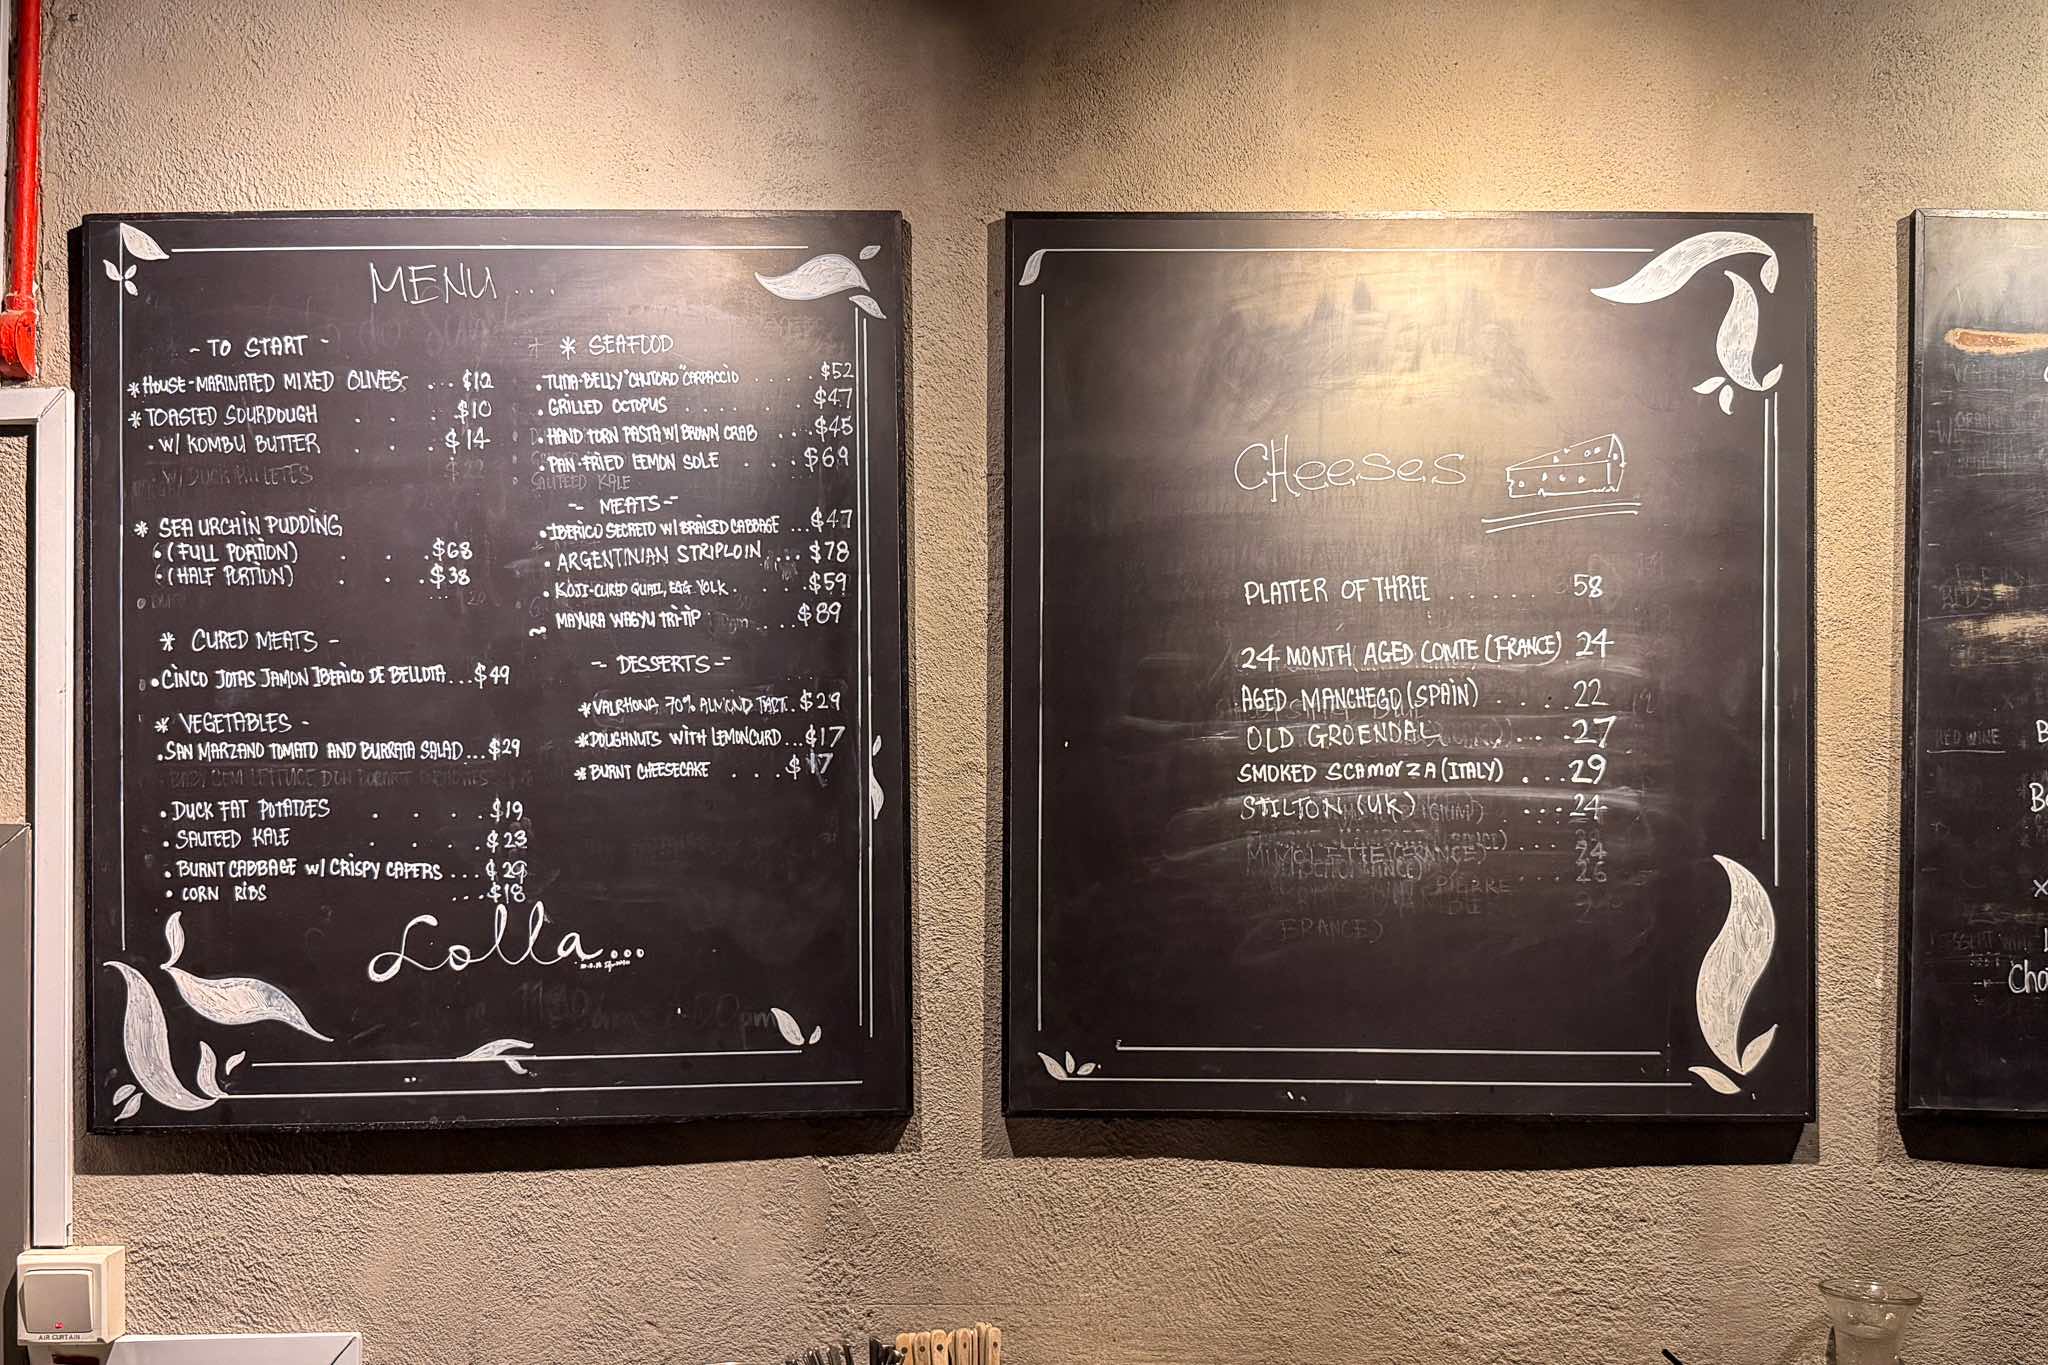 MENU...
- TO START -
* HOUSE-MARINATED MIXED OLIVES ... $12
* TOASTED SOURDOUGH . . . $10
• W/ KOMBU BUTTER . . $14
W/ DUCK RILLETES $22
* SEA URCHIN PUDDING
• (FULL PORTION) . . . $68
• (HALF PORTION) . . . $38
* CURED MEATS -
• CINCO JOTAS JAMON IBERICO DE BELLOTA...$49
* VEGETABLES -
• SAN MARZANO TOMATO AND BURRATA SALAD...$29
• DUCK FAT POTATOES . . . . $19
• SAUTEED KALE . . . . $23
• BURNT CABBAGE W/ CRISPY CAPERS ... $29
• CORN RIBS ...$18
* SEAFOOD
• TUNA-BELLY "CHUTORO" CARPACCIO . . . . $52
• GRILLED OCTOPUS . . . . . $47
• HAND TORN PASTA W/ BROWN CRAB ... $45
• PAN-FRIED LEMON SOLE . . . $69
SAUTEED KALE
-- MEATS --
• IBERICO SECRETO W/ BRAISED CABBAGE ...$47
• ARGENTINIAN STRIPLOIN .... $78
• KOJI-CURED QUAIL, EGG YOLK . . . .$59
MAYURA WAGYU TRI-TIP . . ..$89
-- DESSERTS --
* VALRHONA 70% ALMOND TART. $29
* DOUGHNUTS WITH LEMONCURD ...$17
* BURNT CHEESECAKE . . . $17
Lolla......
CHeeses
PLATTER OF THREE ...... 58
24 MONTH AGED COMTE (FRANCE) 24
AGED MANCHEGO (SPAIN) .... 22
OLD GROENDAL .... 27
SMOKED SCAMORZA (ITALY) ... 29
STILTON (UK) ... 24
MIMOLETTE (FRANCE) 24
26
PIERRE
FRANCE)
RED WINE
Cho
AIR CURTAIN